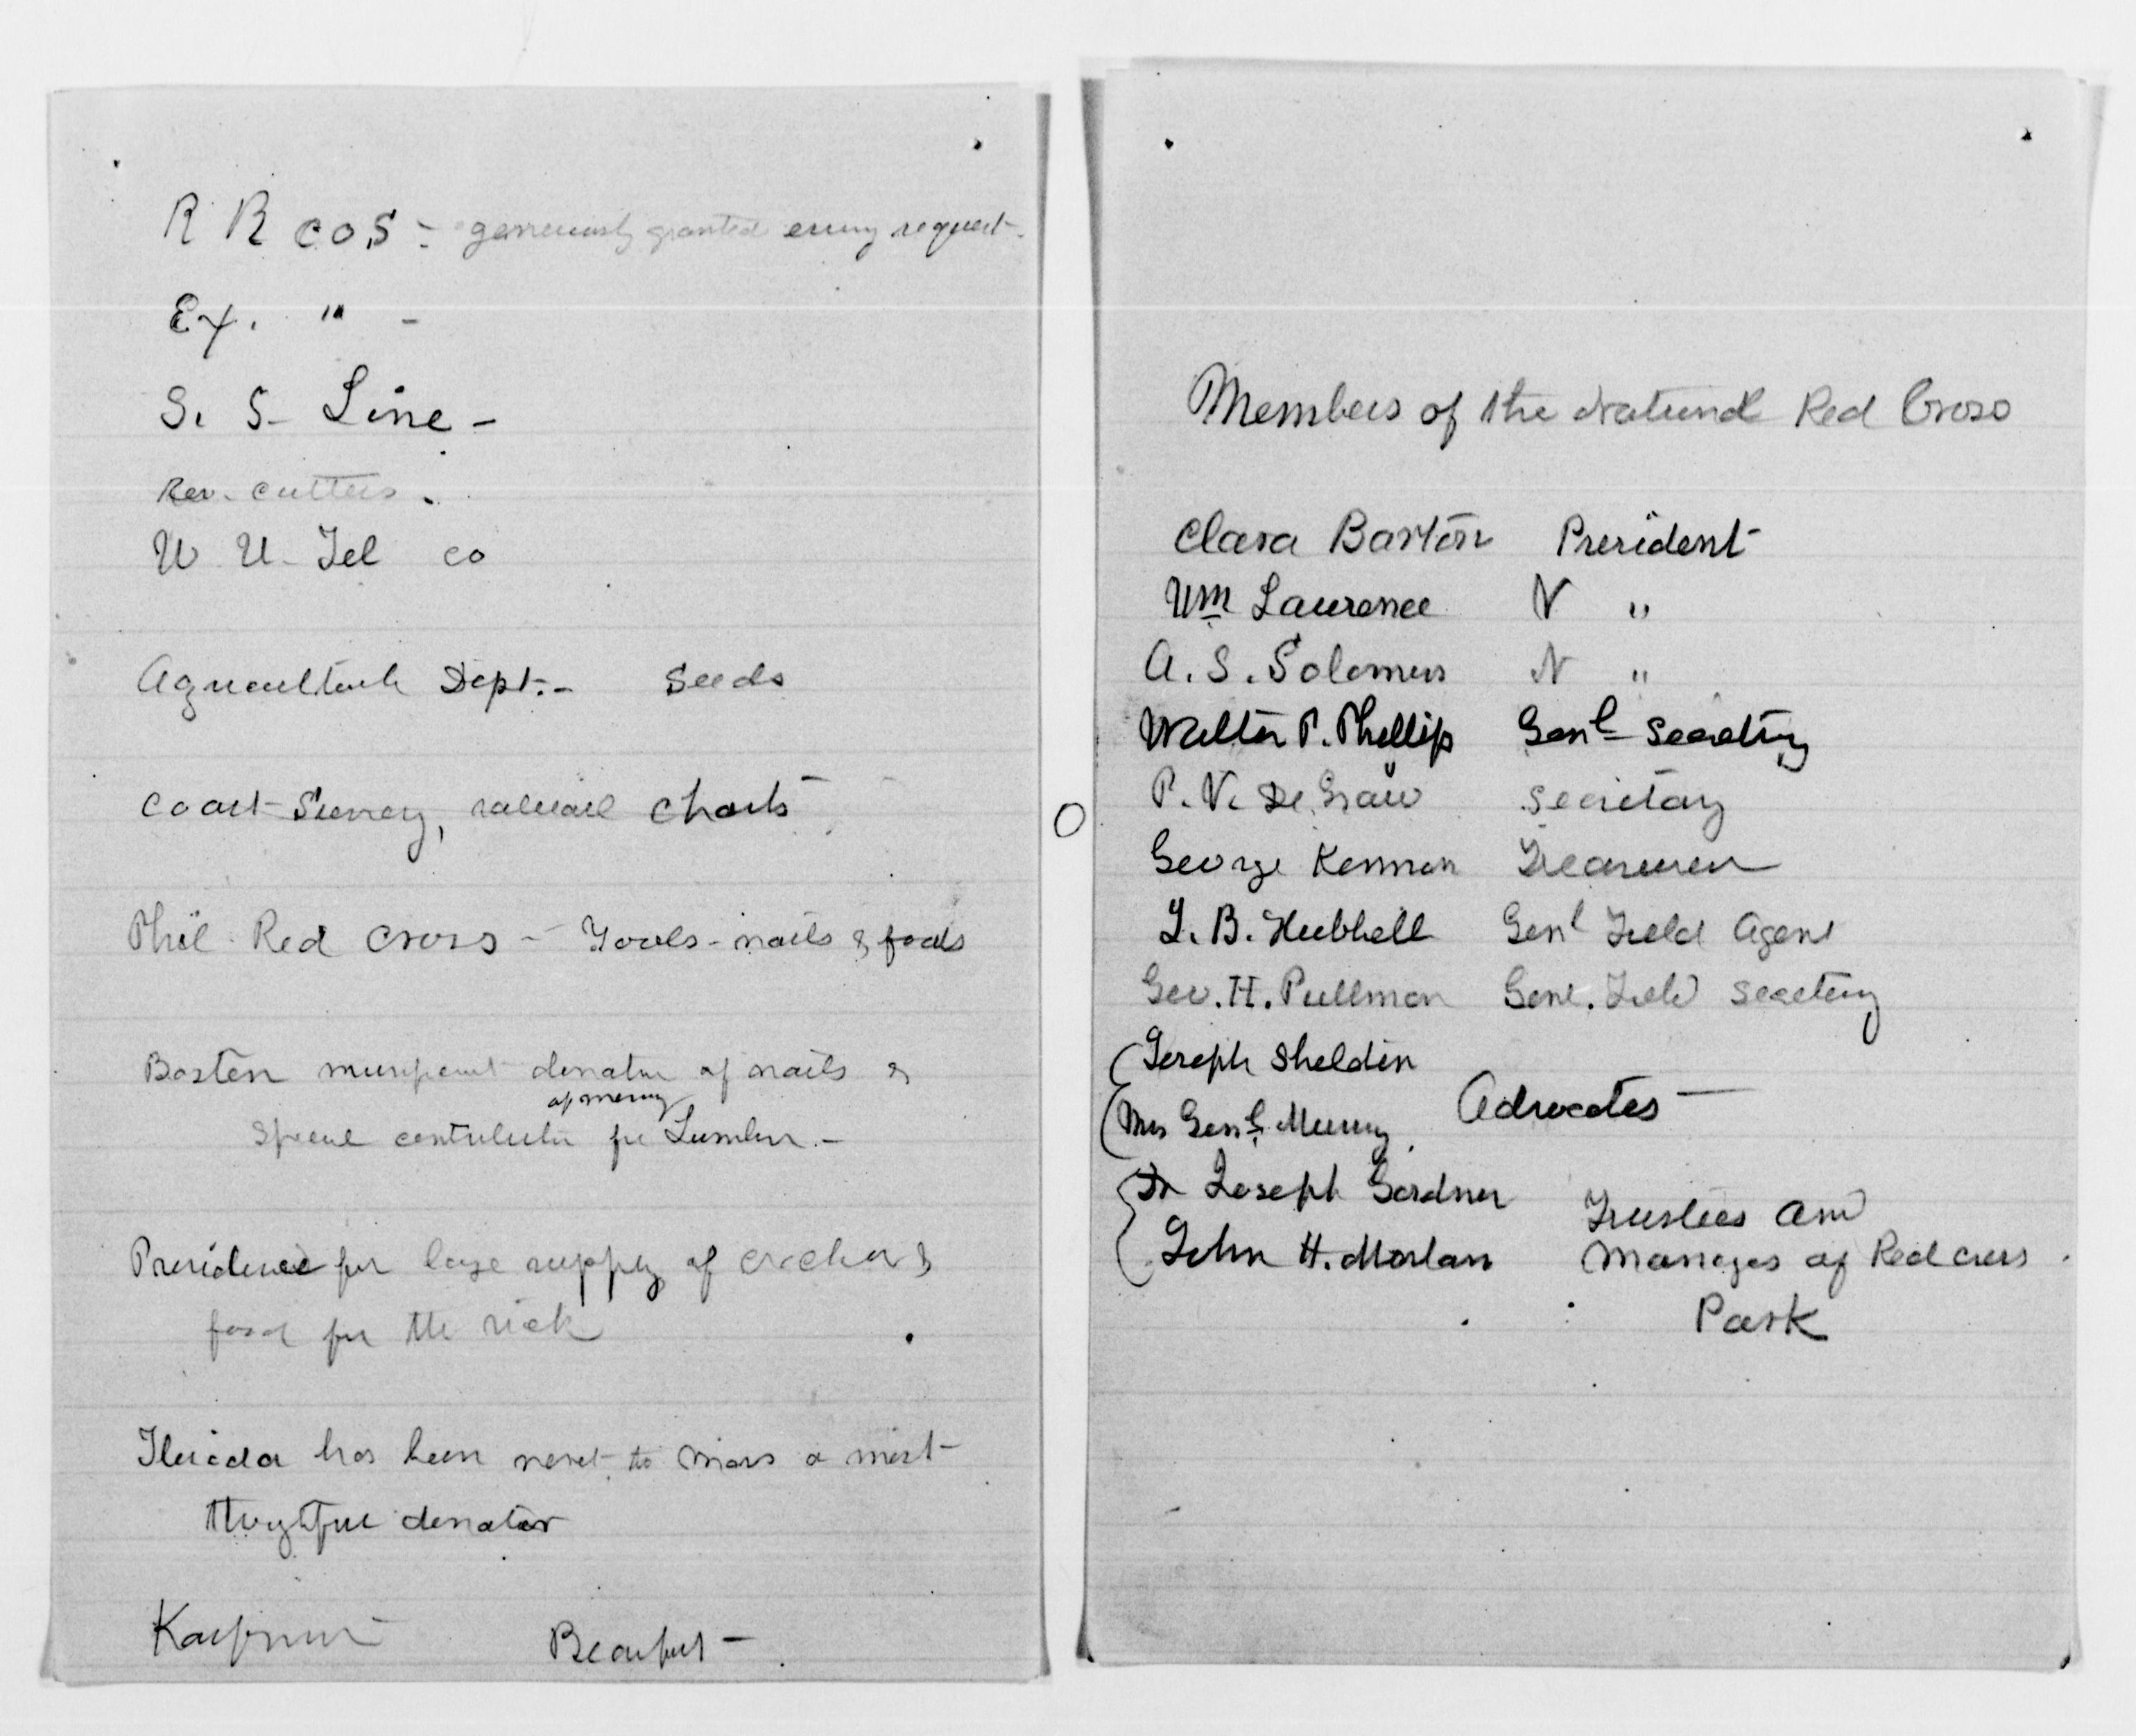 R R cos - generously granted every request -
Ex. " -
S. S - Line -
Rev. cutters.
W U - Tel co
Agricultural Dept. - Seeds
Coast Survey, valuable charts
Phil. Red cross - Tools - nails & foods
Boston munificent donation of nails &
of money
special contribution for Lumber. -
Providence for large supply of crackers &
food for the sick
Florida has been next to Mass a most
thoughtful donator
Beaufort -
Members of the National Red Cross
Clara Barton President
Wm Laurence V "
A. S. Solomons V "
Walter P. Phillips Genl Secretary
P. V. De Graw Secretary
George Kennan Treasurer
J. B. Hubbell Genl Field Agent
Geo. H. Pullman Genl. Field Secretary
Joseph Sheldon
Advocates -
Mrs Genl
Dr Joseph Gardner Trustees and
John H. Morlan Manages of Red cross.
Park